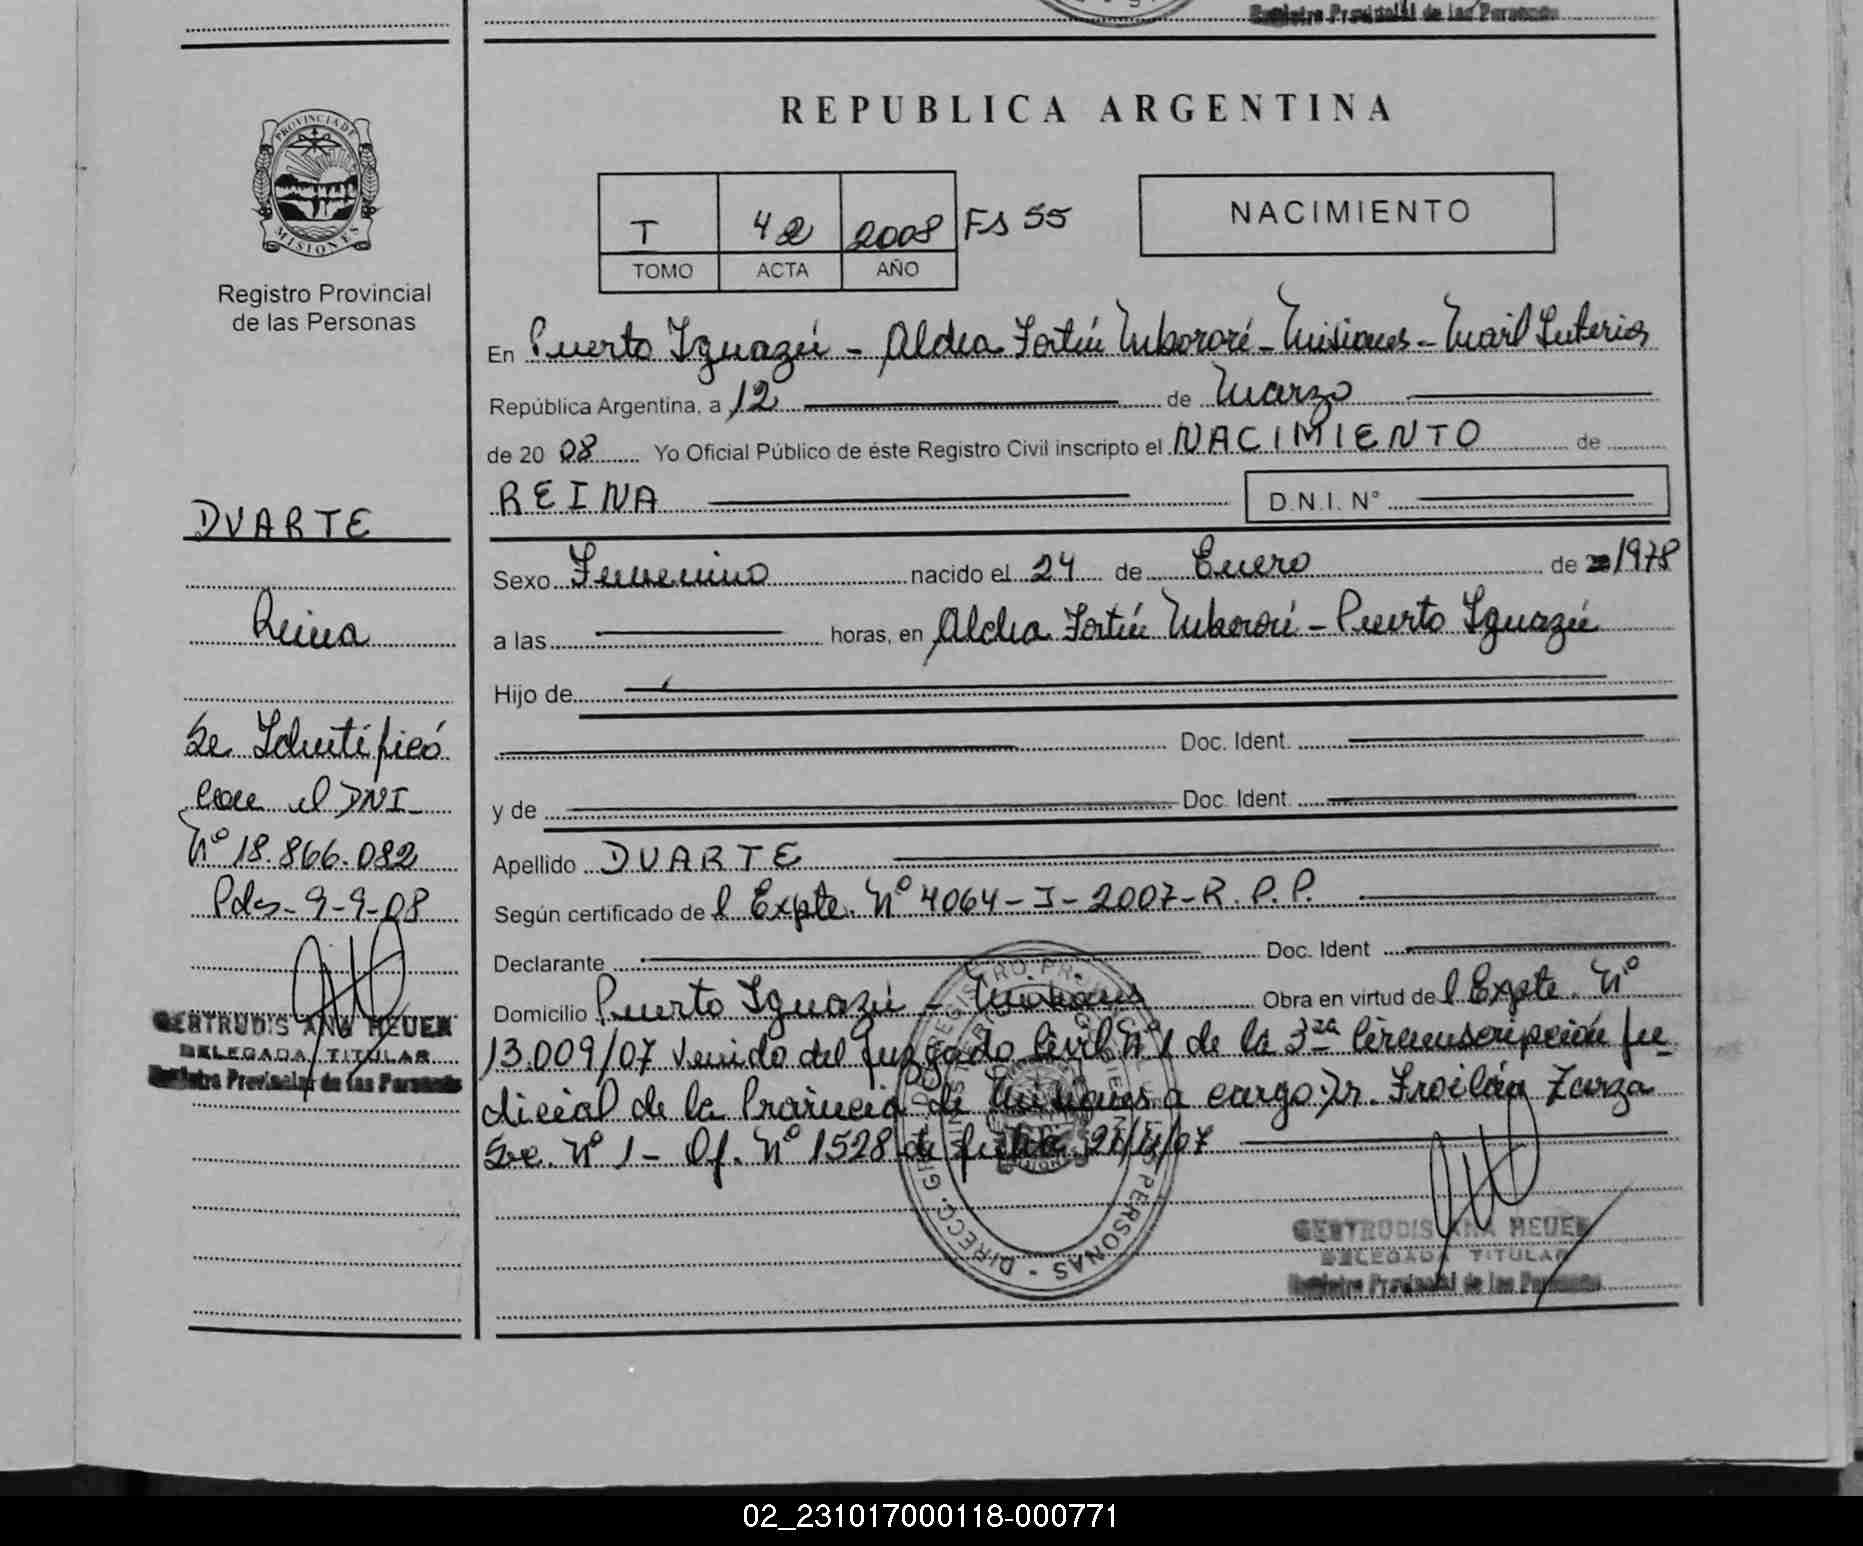 Registro Provincial de las Personas
REPUBLICA ARGENTINA
PROVINCIA DE
MISIONES
Registro Provincial
de las Personas
T 42 2008 FS 55
TOMO ACTA AÑO
NACIMIENTO
En Puerto Iguazú - Aldea Fortín Mbororé - Misiones -
República Argentina, a 12 de Marzo
de 20 08 Yo Oficial Público de éste Registro Civil inscripto el NACIMIENTO de
REINA D.N.I. N°
Sexo Femenino nacido el 24 de Enero de 1978
a las horas, en Aldea Fortín Mbororé - Puerto Iguazú
Hijo de
Doc. Ident.
y de Doc. Ident.
Apellido DUARTE
Según certificado de l Expte. Nº 4064-I-2007-R.P.P.
Declarante Doc. Ident
Domicilio Puerto Iguazú - Misiones Obra en virtud de l Expte. Nº
13.009/07 venido del Juzgado Civil Nº 1 de la 3ra Circunscripción Ju
dicial de la Provincia de Misiones a cargo Dr. Froilán Zarza
Sec. Nº 1 - Of. Nº 1528 de fecha
GERTRUDIS ANA HEUER
DELEGADA TITULAR
Registro Provincial de las Personas
DUARTE
Reina
Se Identificó
con el DNI
Nº 18.866.082
Pdas- 9-9-08
GERTRUDIS ANA HEUER
DELEGADA TITULAR
Registro Provincial de las Personas
02_231017000118-000771